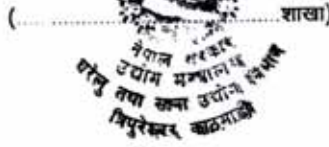 (.................................शाखा)
नेपाल सरकार
उद्योग मन्त्रालय
घरेलु तथा साना उद्योग विभाग
त्रिपुरेश्वर, काठमाडौं